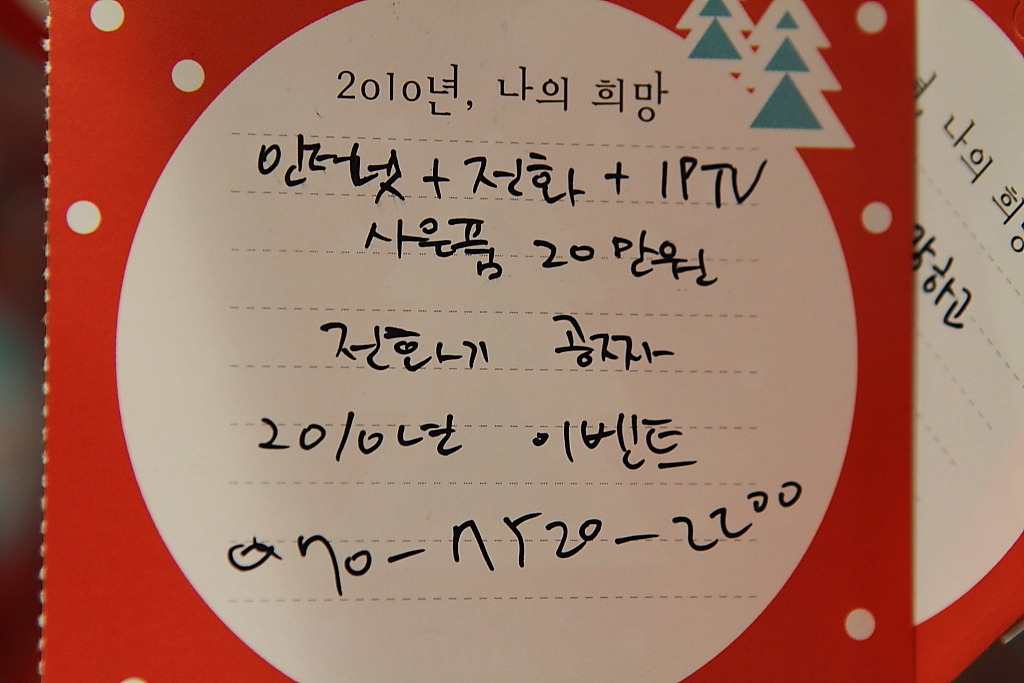 2010년, 나의 희망
인터넷 + 전화 + IPTV
사은품 20만원
전화기 공짜
2010년 이벤트
070-7520-2200
나의 희망
하고